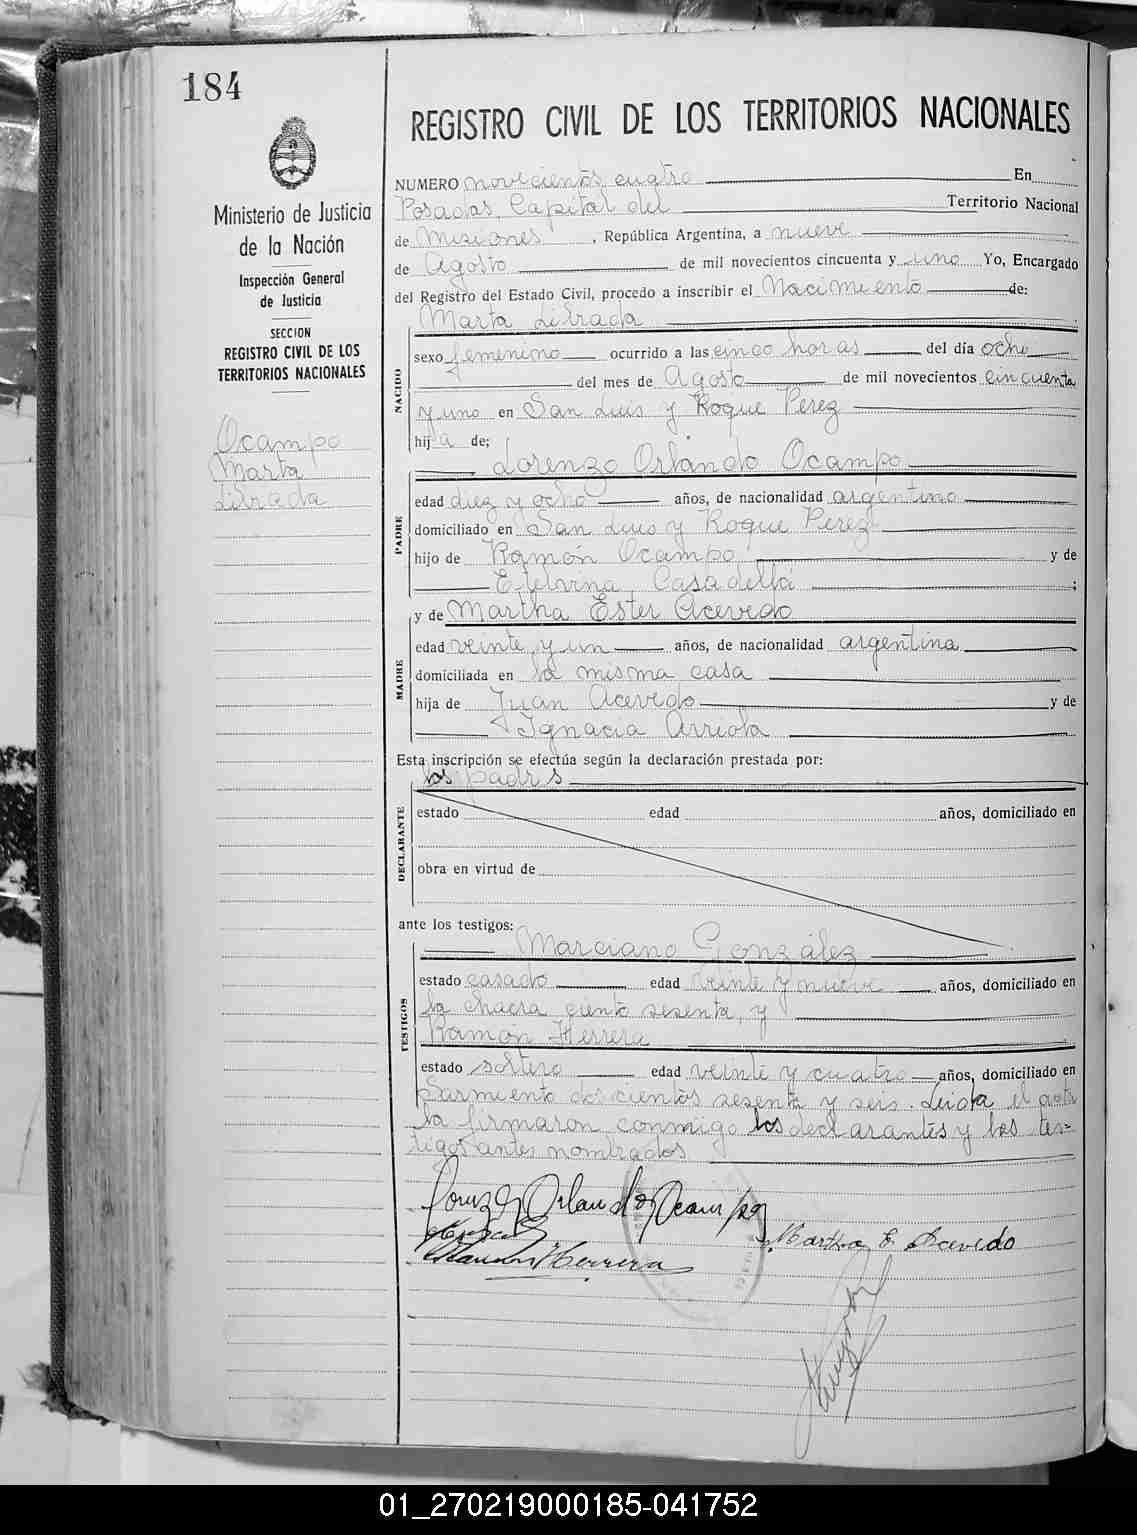 184
Ministerio de Justicia
de la Nación
Inspección General
de Justicia
SECCION
REGISTRO CIVIL DE LOS
TERRITORIOS NACIONALES
Ocampo
Marta
Librada
REGISTRO CIVIL DE LOS TERRITORIOS NACIONALES
NUMERO novecientos cuatro En
Posadas, Capital del Territorio Nacional
de Misiones, República Argentina, a nueve
de Agosto de mil novecientos cincuenta y uno Yo, Encargado
del Registro del Estado Civil, procedo a inscribir el Nacimiento de:
Marta Librada
NACIDO
sexo femenino ocurrido a las cinco horas del día ocho
del mes de Agosto de mil novecientos cincuenta
y uno en San Luis y Roque Perez
hija de;
Lorenzo Orlando Ocampo
PADRE
edad diez y ocho años, de nacionalidad argentino
domiciliado en San Luis y Roque Perez
hijo de Ramón Ocampo y de
Etelvina Casadella ;
y de Martha Ester Acevedo
MADRE
edad veinte y un años, de nacionalidad argentina
domiciliada en la misma casa
hija de Juan Acevedo y de
Ignacia Arriola
Esta inscripción se efectúa según la declaración prestada por:
los padres
DECLARANTE
estado edad años, domiciliado en
obra en virtud de
ante los testigos:
Marciano González
TESTIGOS
estado casado edad veinte y nueve años, domiciliado en
la chacra ciento sesenta, y
Ramón Herrera
estado soltero edad veinte y cuatro años, domiciliado en
Sarmiento doscientos sesenta y seis. Leida el acta
la firmaron conmigo los declarantes y los tes=
tigos antes nombrados
Lorenzo Orlando Ocampo
Martha E Acevedo
Ramón Herrera
01_270219000185-041752